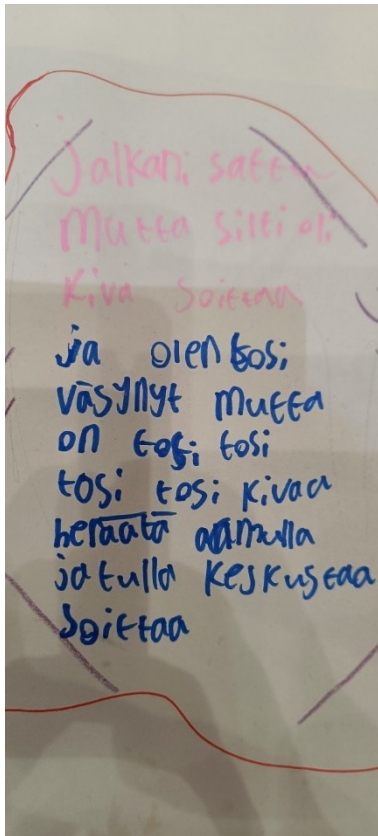 Jalkani sattu
mutta silti oli
kiva soittaa
ja olen tosi
väsynyt mutta
on tosi tosi
tosi tosi kivaa
heräätä aamulla
ja tulla keskustaa
soittaa